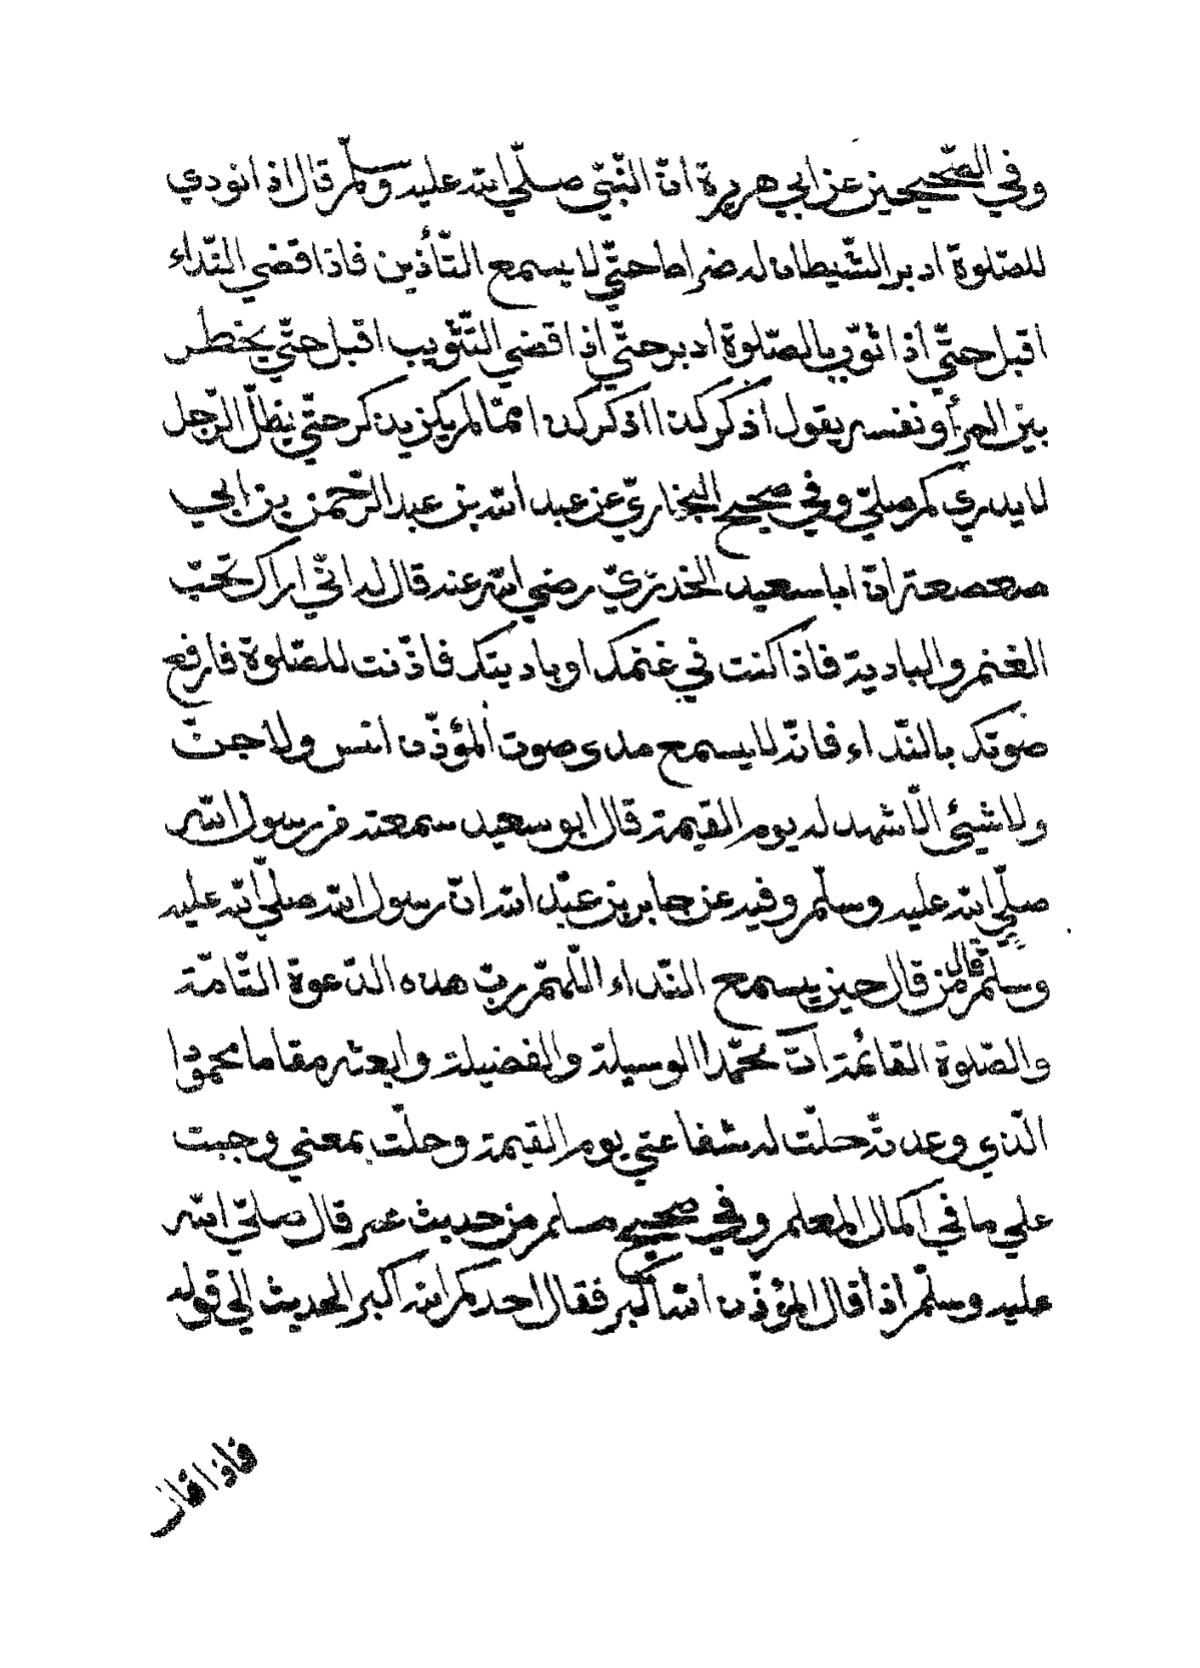 وفي الصّحيحين عن ابي هريرة انّ النّبيّ صلّي الله عليه وسلّم قال اذا نودي
للصّلوة ادبر الشّيطان له ضراط حتّي لا يسمع التّأذين فاذا قضي النّداء
اقبل حتّي اذا ثوّب بالصّلوة ادبر حتّي اذا قضي التّثويب اقبل حتّي يخطر
بين المرأ ونفسه يقول اذكر كذا اذكر كذا ممّا لم يكن يذكر حتّي يظلّ الرّجل
لا يدري كم صلّي وفي صحيح البخاريّ عن عبد الله بن عبد الرّحمن بن ابي
صعصعة انّ ابا سعيد الخدريّ رضي الله عنه قال له انّي اراك تحبّ
الغنم والبادية فاذا كنت في غنمك او باديتك فاذّنت للصّلوة فارفع
صوتك بالنّداء فانّه لا يسمع مدي صوت المؤذّن انس ولا جنّ
ولا شيئ الّا شهد له يوم القيمة قال ابو سعيد سمعته من رسول الله
صلّي الله عليه وسلّم وفيه عن جابر بن عبد الله انّ رسول الله صلّي الله عليه
وسلّم قال من قال حين يسمع النّداء اللّهمّ ربّ هذه الدّعوة التّامّة
والصّلوة القائمة آت محمّدا الوسيلة والفضيلة وابعثه مقاما محمودا
الّذي وعدته حلّت له شفاعتي يوم القيمة وحلّت بمعني وجبت
علي ما في اكمال المعلم وفي صحيح مسلم من حديث عمر قال صلّي الله
عليه وسلّم اذا قال المؤذّن الله اكبر فقال احدكم الله اكبر الحديث الي قوله
فاذا قال